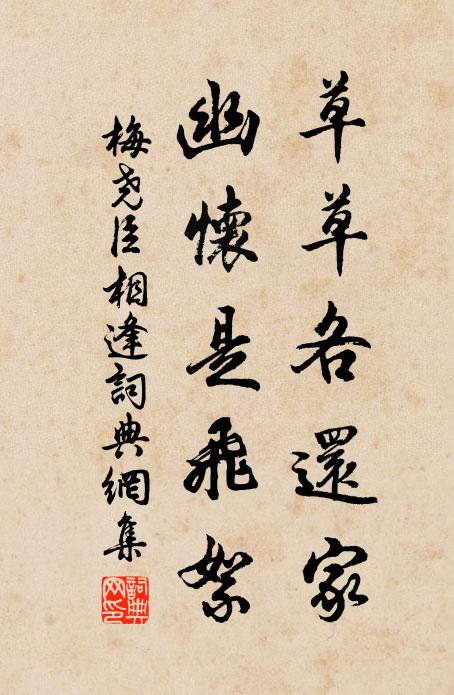 草草各還家
幽懷是飛絮
梅堯臣相逢詞典網集
詞典網印